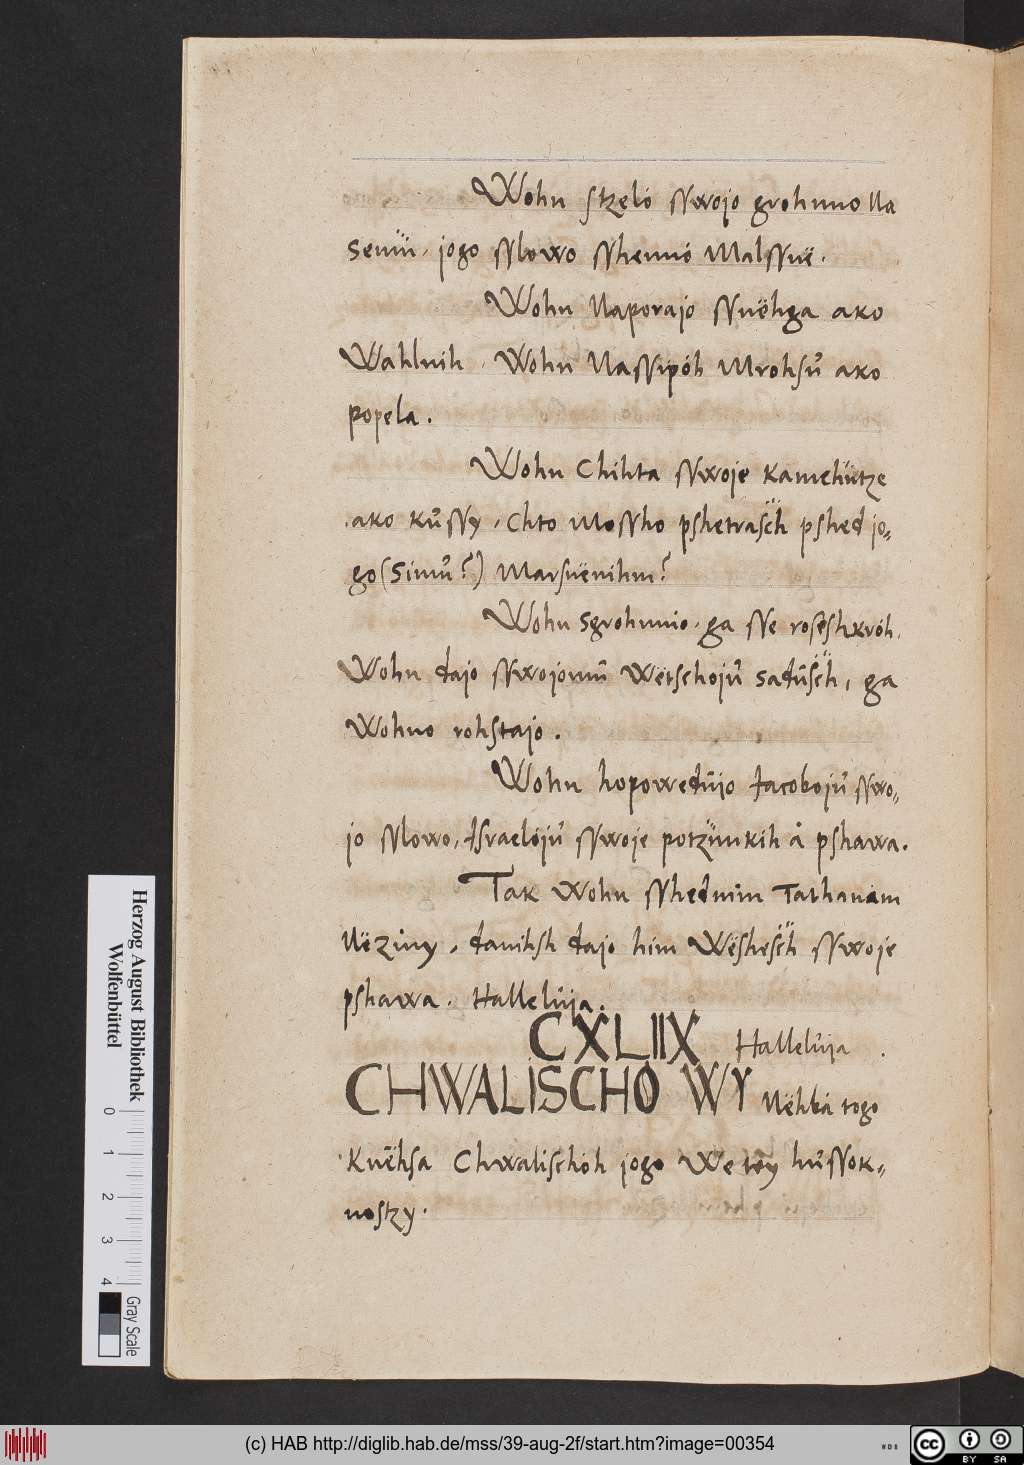 Wohn stzeló sswojo grohnno Na
Semü, jogo sslowo sshennó Malssnë.
Wohn Naporajo ssnëhga ako
Wahlnih. Wohn Nassipóh Mrohsů ako
popela.
Wohn Chihta sswoje kamehütze
ako kůssy, Chto Mossho pshetrasc̈h pshed jo=
go (Simů?) Marsnënihm?
Wohn Sgrohnnio, ga sse rosëshkróh.
Wohn dajo sswojomů Wëtschojů Sadůsc̈h, ga
Wohno rohstajo.
Wohn hopowedůjo Jacobojů sswo=
jo sslowo, Israelojů sswoje potzünkih å pshawa.
Tak Wohn sshednim Tathanam
Nëziny, danihsh dajo him Wëshesc̈h sswoje
pshawa. Halleluja.
CXLIIX Halleluja.
CHWALISCHO WY Nëhbá togo
Knëhsa Chwalischóh jogo We tey hůssok=
nostzy.
Herzog August Bibliothek
Wolfenbüttel
0 1 2 3 4
Gray Scale
(c) HAB http://diglib.hab.de/mss/39-aug-2f/start.htm?image=00354
WDB
cc BY SA